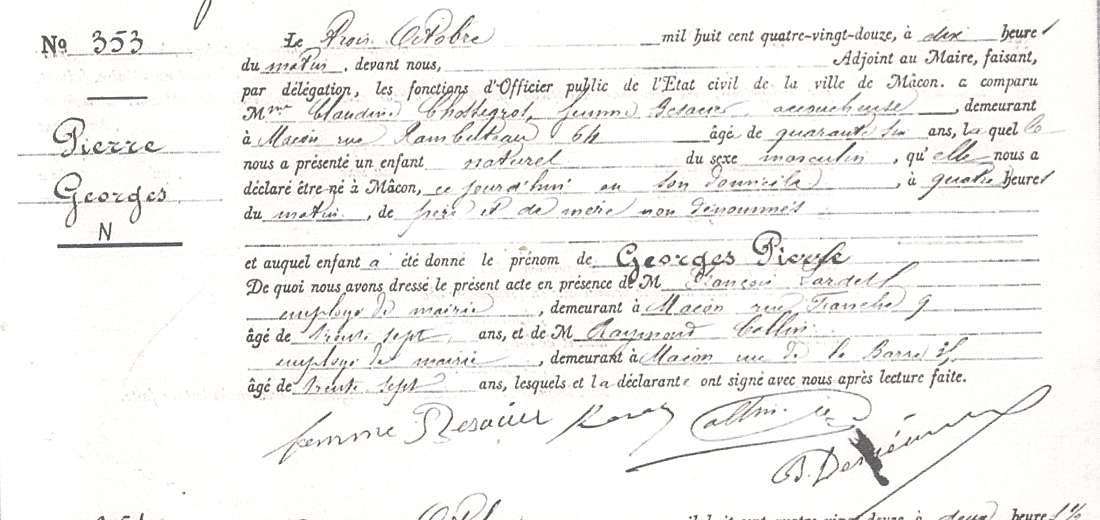 No 353
Pierre
Georges
N
Le trois Octobre mil huit cent quatre-vingt-douze, à dix heures
du matin, devant nous, Adjoint au Maire, faisant,
par délégation, les fonctions d'Officier public de l'Etat civil de la ville de Mâcon. a comparu
Mme Claudine Chossegrot, femme Besacier, accoucheuse, demeurant
à Macon rue Rambuteau 64 âgé de quarante six ans, laquelle
nous a présenté un enfant naturel du sexe masculin, qu'elle nous a
déclaré être né à Mâcon, ce jourd'hui au son domicile, à quatre heures
du matin, de père et de mère non dénommés
et auquel enfant a été donné le prénom de Georges Pierre
De quoi nous avons dressé le présent acte en présence de M François
employé de mairie, demeurant à Macon rue Franche 9
âgé de trente sept ans, et de M Raymond Collin
employé de mairie, demeurant à Macon rue de la Barre
âgé de trente sept ans, lesquels et la déclarante ont signé avec nous après lecture faite.
femme Besacier Collin
Octobre mil huit cent quatre-vingt-douze à deux heures 1/2